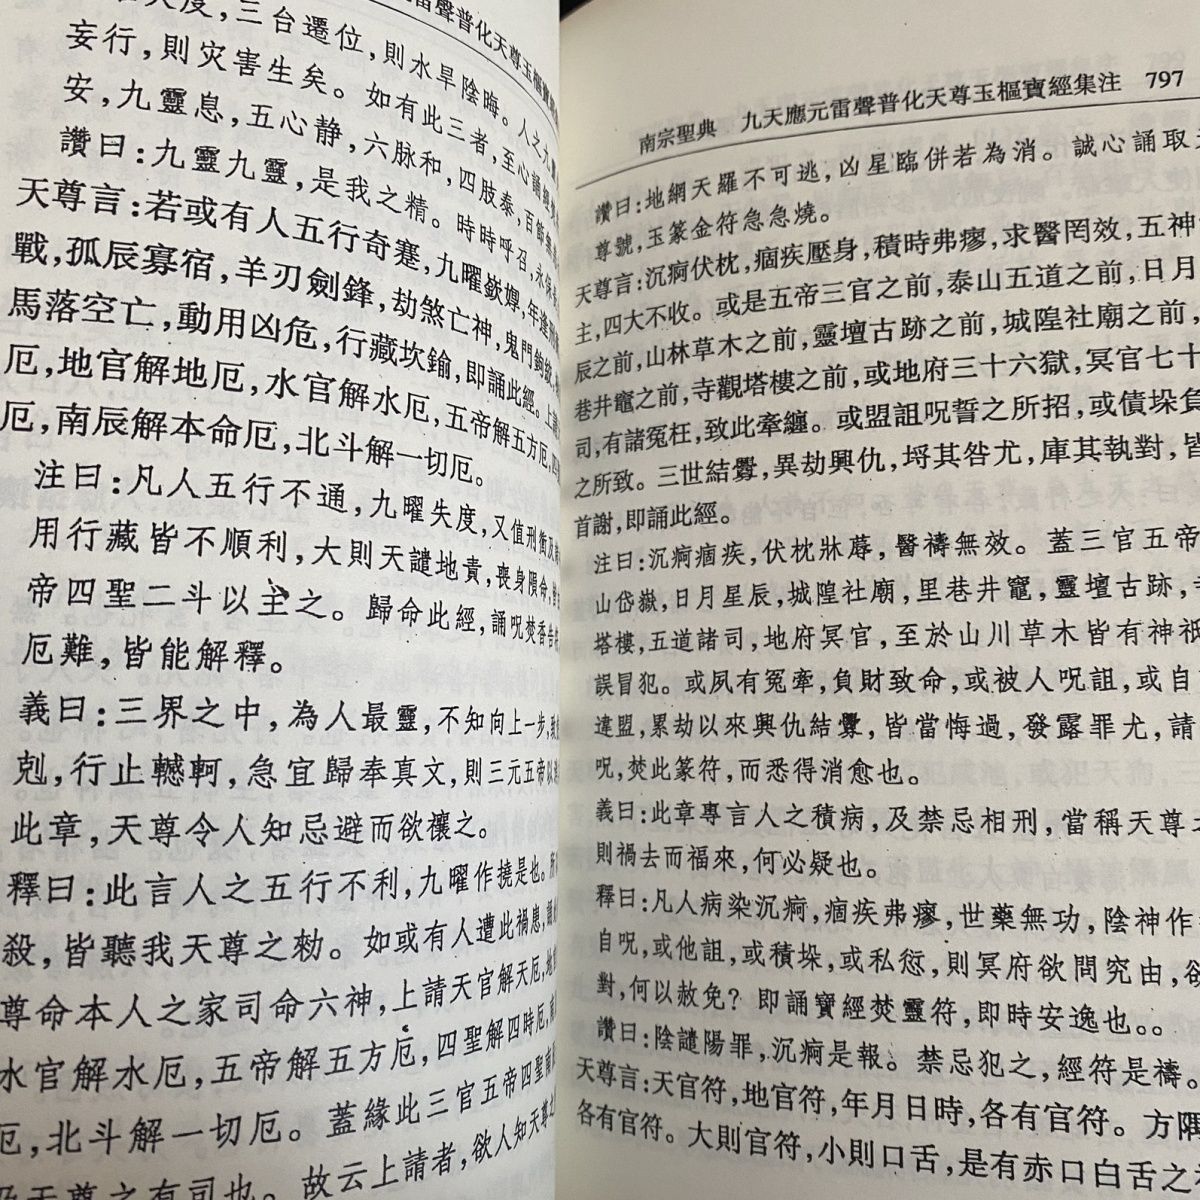 雷聲普化天尊玉樞寶
度,三台遷位,則水旱陰晦。人之九
妄行,則灾害生矣。如有此三者,至心誦
安,九靈息,五心静,六脉和,四肢泰,百節
讚曰:九靈九靈,是我之精。時時呼召,永保
天尊言:若或有人五行奇蹇,九曜嶔㟳,年逢刑
戰,孤辰寡宿,羊刃劍鋒,劫煞亡神,鬼門鉤
馬落空亡,動用凶危,行藏坎𨻶,即誦此經。上請
厄,地官解地厄,水官解水厄,五帝解五方厄,四
厄,南辰解本命厄,北斗解一切厄。
注曰:凡人五行不通,九曜失度,又值刑衝及
用行藏皆不順利,大則天譴地責,喪身隕命,
帝四聖二斗以主之。歸命此經,誦呪焚香告
厄難,皆能解釋。
義曰:三界之中,為人最靈,不知向上一步,致
剋,行止轗軻,急宜歸奉真文,則三元五帝
此章,天尊令人知忌避而欲禳之。
釋曰:此言人之五行不利,九曜作撓是也。所
殺,皆聽我天尊之勑。如或有人遭此禍患,
尊命本人之家司命六神,上請天官解天厄,地
水官解水厄,五帝解五方厄,四聖解四時厄,南
厄,北斗解一切厄。蓋緣此三官五帝四聖南
乃天尊之有司也。故云上請者,欲人知天尊之
南宗聖典 九天應元雷聲普化天尊玉樞寶經集注 797
讚曰:地網天羅不可逃,凶星臨併若為消。誠心誦取
尊號,玉篆金符急急燒。
天尊言:沉痾伏枕,痼疾壓身,積時弗瘳,求醫罔效,五神
主,四大不收。或是五帝三官之前,泰山五道之前,日月
辰之前,山林草木之前,靈壇古跡之前,城隍社廟之前,
巷井竈之前,寺觀塔樓之前,或地府三十六獄,冥官七十
司,有諸冤枉,致此牽纏。或盟詛呪誓之所招,或債垛負
之所致。三世結釁,異劫興仇,埒其咎尤,庫其執對,皆
首謝,即誦此經。
注曰:沉痾痼疾,伏枕牀蓐,醫禱無效。蓋三官五帝
山岱嶽,日月星辰,城隍社廟,里巷井竈,靈壇古跡,寺
塔樓,五道諸司,地府冥官,至於山川草木皆有神祇
誤冒犯。或夙有冤牽,負財致命,或被人呪詛,或自
違盟,累劫以來興仇結釁,皆當悔過,發露罪尤,請
呪,焚此篆符,而悉得消愈也。
義曰:此章專言人之積病,及禁忌相刑,當稱天尊
則禍去而福來,何必疑也。
釋曰:凡人病染沉痾,痼疾弗瘳,世藥無功,陰神作
自呪,或他詛,或積垛,或私愆,則冥府欲問究由,欲
對,何以赦免?即誦寶經焚靈符,即時安逸也。。
讚曰:陰譴陽罪,沉痾是報。禁忌犯之,經符是禱。
天尊言:天官符,地官符,年月日時,各有官符。方隅
各有官符。大則官符,小則口舌,是有赤口白舌之